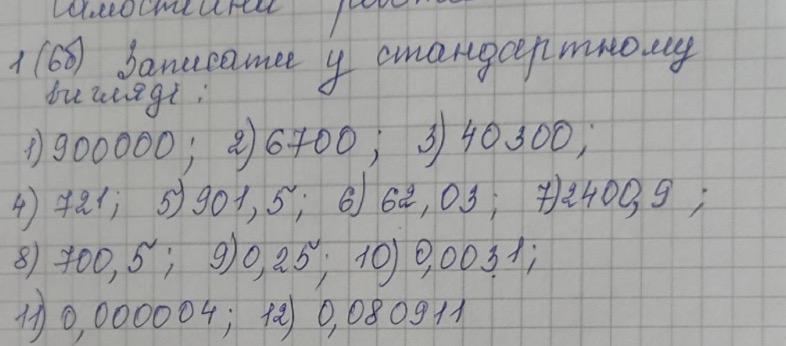 Самостійна робота
1 (6б) Записати у стандартному
вигляді:
1) 900000; 2) 6700; 3) 40300;
4) 721; 5) 901,5; 6) 62,03; 7) 2400,9;
8) 700,5; 9) 0,25; 10) 0,0031;
11) 0,000004; 12) 0,080911